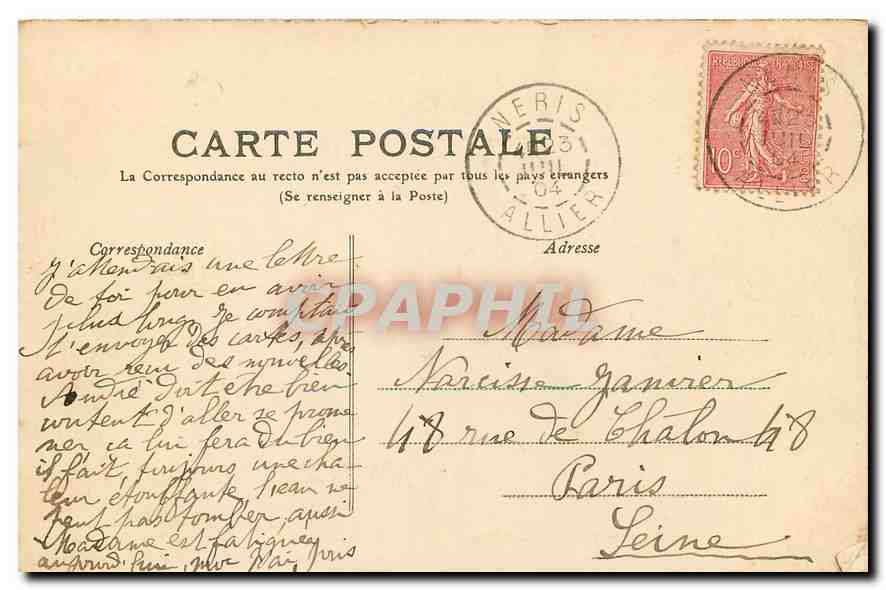 RÉPUBLIQUE FRANÇAISE
10c
NERIS
23
JUIL
04
ALLIER
CARTE POSTALE
La Correspondance au recto n'est pas acceptée par tous les pays étrangers
(Se renseigner à la Poste)
Correspondance
J'attendais une lettre
de toi pour en avoir
plus long, je comptais
t'envoyer des cartes, après
avoir reçu des nouvelles
doit etre bien
content d'aller se prome
ner, ça lui fera du bien
il fait toujours une cha
leur étouffante, l'eau ne
peut pas tomber, aussi
Madame est fatiguée
aujourd'hui, moi j'ai pris
Adresse
Madame
Narcisse Janvier
48 rue de Chalon 48
Paris
Seine
CPAPHIL